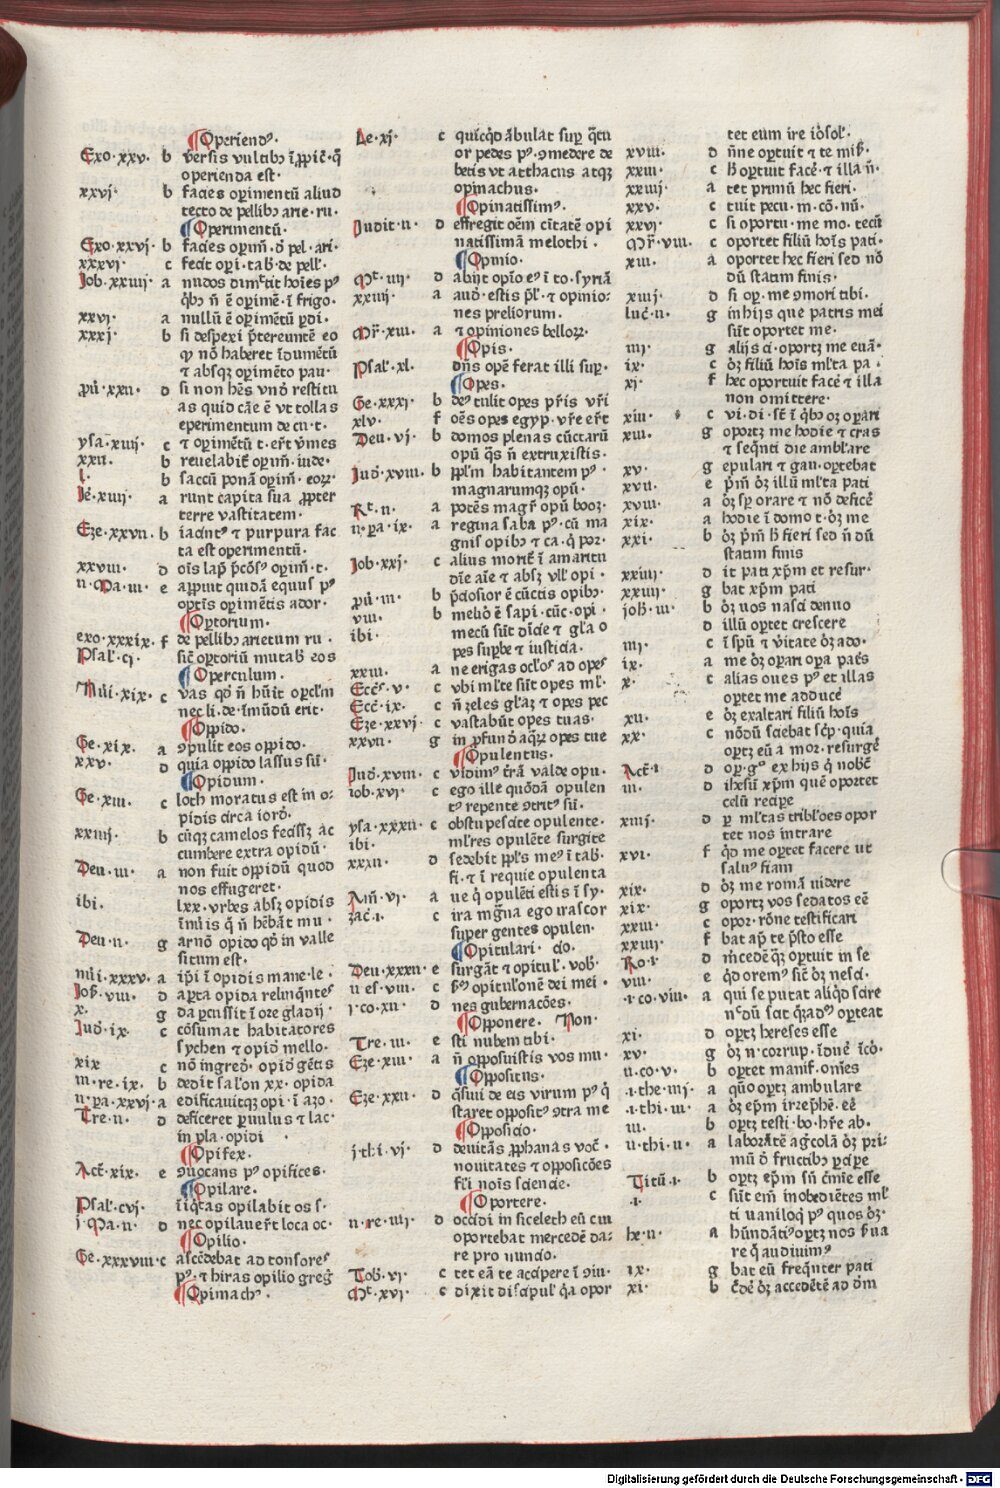 ¶Operiendꝰ.
Exo.xxv. b versis vultibꝰ ī ꝓpic̄. q̄
operienda est.
xxvj. b facies operimentū aliud
tecto de pellibꝰ arie. ru.
¶Operimentū.
Exo.xxvj. b facies operim̄. d̄ pel. ari.
xxxvj. c fecit operi. tab̄. de pell̄.
Job.xxiiij. a nudos dimittit hoīes pꝰ
qͥbꝰ n̄ ē operimē. ī frigo.
xxvj. a nullū ē operimētū ꝑdi.
xxxj. b si despexi p̄tereuntē eo
qꝫ nō haberet īdumētū
et absqꝫ operimēto pau.
ꝓu̓.xxii. d si non hēs vnd̓ restitu
as quid cāe ē vt tollas
operimentum de cu. t.
ysa.xiiij. c et operimētū t. er̄t v̓mes
xxii. b reuelabit̄ operim̄. iude.
l. b saccū ponā operim̄. eoꝝ.
Je.xiiij. a runt capita sua ꝓpter
terre vastitatem.
Eze.xxvii. b iacintꝰ et purpura fac
ta est operimentū.
xxviii. d oīs lap̄ p̄cōsꝰ operim̄. t.
ii.Ma.iii. e apparuit quidā equus pꝰ
optīs operimētis ador.
¶Opertorium.
exo.xxxix. f de pellibꝰ arietum ru.
Psal̄.cj. sic̄ opertoriū mutab̄ eos
¶Operculum.
Nūi.xix. c vas qd̓ n̄ hūit opercl̄m
nec li. de. īmūdū erit.
¶Oppido.
Ge.xix. a ꝯpulit eos oppido.
xxv. d quia oppido lassus sū.
¶Opidum.
Ge.xiii. c loth moratus est in o-
pidis circa iord̄.
xxiiij. b cūqꝫ camelos fecissꝫ ac
cumbere extra opidū.
Deu.iii. a non fuit oppidū quod
nos effugeret.
ibi. lxx. vrbes absqꝫ opidis
īmuīs q̄ n̄ hēbāt mu.
Deu.ii. g arnō opido qd̓ in valle
situm est.
nūi.xxxv. a ip̄i ī opidis mane. le.
Jos̄.viii. d aperta opida relinq̄ntes
x. g da percussit ī oꝛe gladij.
Jud̄.ix. c cōsumat habitatores
sychen et opid̄ mello.
xix c nō ingred̄. opid̄ gētis
iii.re.ix. b dedit salōn xx. opida
ii.pa.xxvj. a edificauitqꝫ opi. ī azo.
Tre.ii. d deficeret paruulus et lac.
in pla. opidi
¶Opifex.
Act̄.xix. e ꝯuocans pꝰ opifices.
¶Opilare.
Psal̄.cvj. īiqͥtas opilabit os s.
j.Ma.ii. d nec opilauer̄t loca oc.
¶Opilio.
Ge.xxxviii. c ascēdebat ad tonsores
pꝰ. et hiras opilio greg̓
¶Opimachꝰ.
Le.xj. c quicqd̓ ābulat sup̄ q̄tu
or pedes pꝰ. ꝯmedere de
betis vt atthacus atqꝫ
opimachus.
¶Opinatissimꝰ.
Judit.ii. d effregit oēm ciuitatē opi
natissimā melothi.
¶Opinio.
Mt̄.iiij. d abijt opio eꝰ ī to. syriā
xxiiij. a aud̄. estis pl̄. et opinio-
nes preliorum.
Mr̄.xiii. a et opiniones belloꝝ.
¶Opis.
Psal̄.xl. dn̄s opē ferat illi sup̄.
¶Opes.
Ge.xxxj. b deꝰ tulit opes pr̄is vr̄i
xlv. f oēs opes egyp. vr̄e er̄t
Deu.vj. b domos plenas cūctarū
opū qͣs n̄ extruxistis.
Jud̄.xviii. b ppl̄m habitantem pꝰ.
magnarumqꝫ opū.
Rt.ii. a potēs magr̄ opū booz.
ii.pa.ix. a regina saba pꝰ. cū ma
gnis opibꝰ et ca. q̄ por.
Job.xxj. c alius morit̄ ī amaritu
dīe aīe et absqꝫ vll̄ opi.
ꝓu̓.iii. b p̄ciosior ē cūctis opibꝰ.
viii. b meliꝰ ē sapi. cūc. opi.
ibi. mecū sūt diuīe et gl̄a o
pes supbe et iusticia.
xxiii. a ne erigas ocl̓os ad opes
Ecc̄.v. c vbi ml̄te sūt opes ml̄.
Ecc̄.ix. c n̄ zeles gl̄aꝫ et opes pec
Eze.xxvj c vastabūt opes tuas.
xxvii. g in profund̄ aqꝝ opes tue
¶Opulentus.
Jud̄.xviii. c vidimꝰ t̄rā valde opu.
iob.xvj. c ego ille quōdā opulen
tꝰ repente ꝯtritꝰ sū.
ysa.xxxii. c obstupescite opulente.
ibi. ml̄res opulēte surgite
xxxii. d sedebit ppl̄s meꝰ ī tab̄.
fi. et ī requie opulenta
Am̄.vj. a ue q̄ opulēti estis ī sy.
zac̄.i. c ira mgͣna ego irascor
super gentes opulen.
¶Opitulari. do.
Deu.xxxii. e surgāt et opitul̄. vob̄.
ii es.viii. c pꝰ opitul̓onē dei mei.
j.co.xii. d nes gubernacōes.
¶Opponere. Pon.
Tre.iii. e sti nubem tibi.
Eze.xiii. a n̄ opposuistis vos mu.
¶Oppositus.
Eze.xxii. d q̄siui de eis virum pꝰ q̄
staret oppositꝰ ꝯtra me
¶Opposicio.
j.thi.vj. d deuitās ꝓphanas voc̄.
nouitates et opposicōes
fl̓i noīs sciencie.
¶Oportere.
ii.re.iiij. d occidi in siceleth eū cui
oportebat mercedē da-
re pro nuncio.
Tob̄.vj. c tet eā te accipere ī ꝯiu.
Mt̄.xvj. c dixit discipul̄. qͥa opor
tet eum ire ih̓osol̄.
xviii. d n̄ne oportuit et te mis̄.
xxiii. c h̓ oportuit facē. et illa n̄.
xxiiij. a tet primū hec fieri.
xxv. c tuit pecu. m. cō. nū.
xxvj. c si oportu. me mo. tecū
Mr̄.viii. c oportet filiū hoīs pati.
xiii. a oportet hec fieri sed nō
dū statim finis.
xiiij. d si op. me ꝯmori tibi.
luc̄.ii. g in hijs que patris mei
sūt oportet me.
iiij. g alijs ci. oportꝫ me euā.
ix. c oꝫ filiū hoīs ml̄ta pa.
xj. f hec oportuit facē et illa
non omittere.
xiii. c vi. di. st̄ ī qͥbꝰ oꝫ operari
xiii. g oportꝫ me hodie et cras
et seq̄nti die ambl̄are
xv. g epulari et gau. oportebat
xvii. e p̄m̄ oꝫ illū ml̄ta pati
xviii. a oꝫ sꝑ orare et nō deficē
xix. a hodie ī domo t. oꝫ me
xxi. b oꝫ p̄m̄ h̓ fieri sed n̄ dū
statim finis
xxiiij. d it pati xp̄m et resur.
xxiiij. g bat xp̄m pati
joh̄.iii. b oꝫ uos nasci denuo
d illū oportet crescere
iiij. c ī spū et v̓itate oꝫ ado.
ix. a me oꝫ operari opera pat̄s
x. c alias oues pꝰ et illas
oportet me adducē
xii. e oꝫ exaltari filiū hoīs
xx. c nōdū sciebat sc̄p̄. quia
oportꝫ eū a moꝛ. resurgē
Act̄.i d op. gͦ ex hijs qͥ nobc̄
iii. d ihesū xp̄m quē oportet
celū recipe
xiiij. d per ml̄tas tribl̓oēs opor
tet nos intrare
xvi. f qͥd me oportet facere ut
saluꝰ fiam
xix. d oꝫ me romā uidere
xix. g oportꝫ vos sedatos eē
xxiii. c opor. rōne testificari
xxiiij. f bat ap̄ te p̄sto esse
Ro.i d m̄cedē qꝫ oportuit in se
viii. e qd̓ oremꝰ sic̄ oꝫ nesci.
.i.co.viii. a qui se putat aliqd̓ scire
nōdū scit qͣadꝰ oporteat
xi. d oportꝫ hereses esse
xv. g oꝫ n. corrup. īduē īco̓.
ii.co.v. b oportet manif. om̄es
.i.the.iiij. a quō oportꝫ ambulare
.i.thi.iii. a oꝫ ep̄m irrep̄hē. eē
iii. b oportꝫ testi. bo. hr̄e ab.
ii.thi.ii. a laborātē agͥcolā oꝫ pri-
mū d̄ fructibꝰ percipe
Titū.i. b oportꝫ ep̄m sn̄ c̓mīe esse
.i. c sūt em̄ inobediētes ml̄
ti vaniloqͥ pꝰ quos oꝫ.
he.ii. a hūndātiꝰ oportꝫ nos s̓ua
re q̄ audiuimꝰ
ix. g bat eū freq̄nter pati
xi. b c̓dē oꝫ accedētē ad dm̄
Digitalisierung gefördert durch die Deutsche Forschungsgemeinschaft - DFG